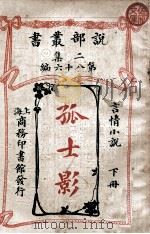 說部叢書
二集第八十六編
言情小說
孤士影
下冊
上海商務印書館發行